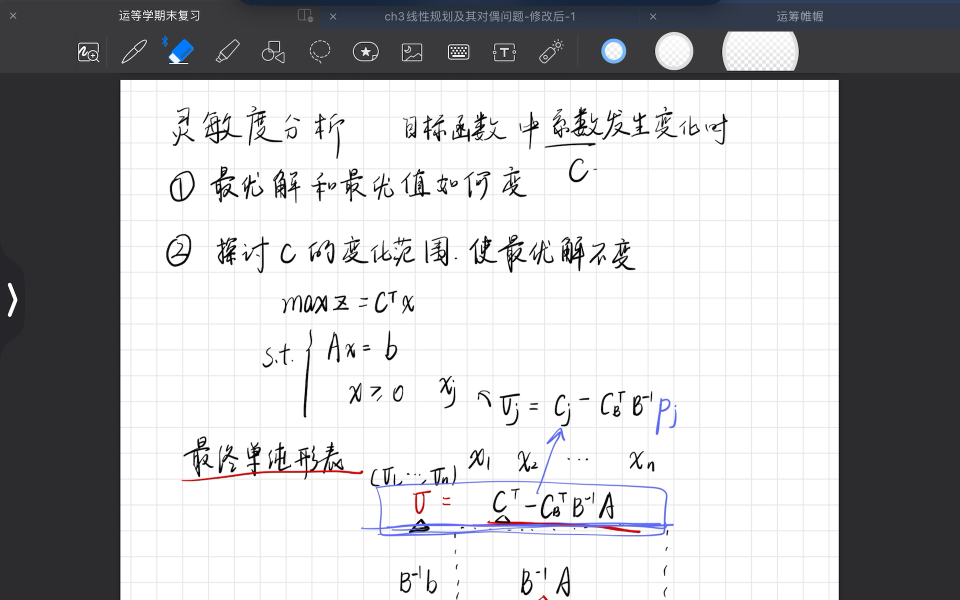 运等学期末复习
ch3线性规划及其对偶问题-修改后-1
运筹帷幄
灵敏度分析 目标函数中系数发生变化时
① 最优解和最优值如何变 C
② 探讨C的变化范围.使最优解不变
max z = Cᵀx
s.t. { Ax = b
x ≥ 0 xj
σj = Cj - C_Bᵀ B⁻¹ pj
最终单纯形表
x₁ x₂ ... xn
(σ₁,...,σn)
σ = Cᵀ - C_Bᵀ B⁻¹ A
B⁻¹b B⁻¹A